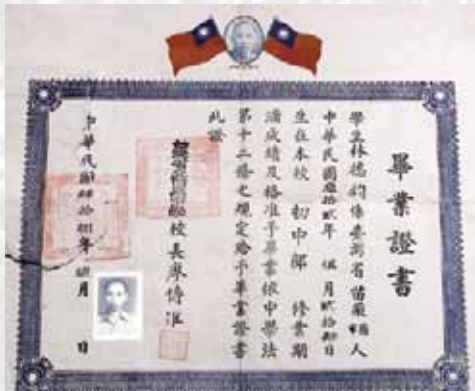 畢業證書
學生林德鈞係臺灣省苗栗縣人
中華民國貳拾貳年伍月貳拾肆日
生在本校初中部修業期
滿成績及格准予畢業依中學法
第十二條之規定給予畢業證書
此證
校長廖傳淮
中華民國肆拾年 月 日